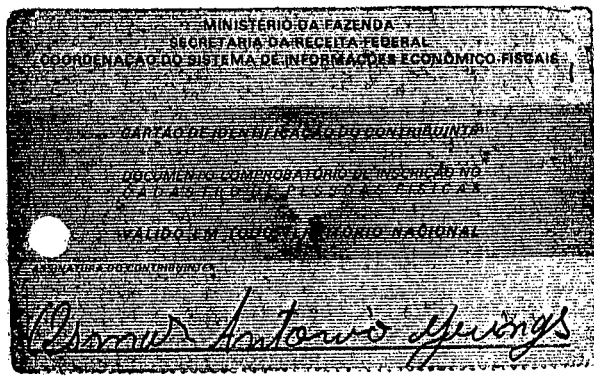 MINISTÉRIO DA FAZENDA
SECRETARIA DA RECEITA FEDERAL
COORDENAÇÃO DO SISTEMA DE INFORMAÇÕES ECONÔMICO-FISCAIS
CARTÃO DE IDENTIFICAÇÃO DO CONTRIBUINTE
DOCUMENTO COMPROBATÓRIO DE INSCRIÇÃO NO
CADASTRO DE PESSOAS FÍSICAS
VÁLIDO EM TODO TERRITÓRIO NACIONAL
ASSINATURA DO CONTRIBUINTE
Osmar Antonio